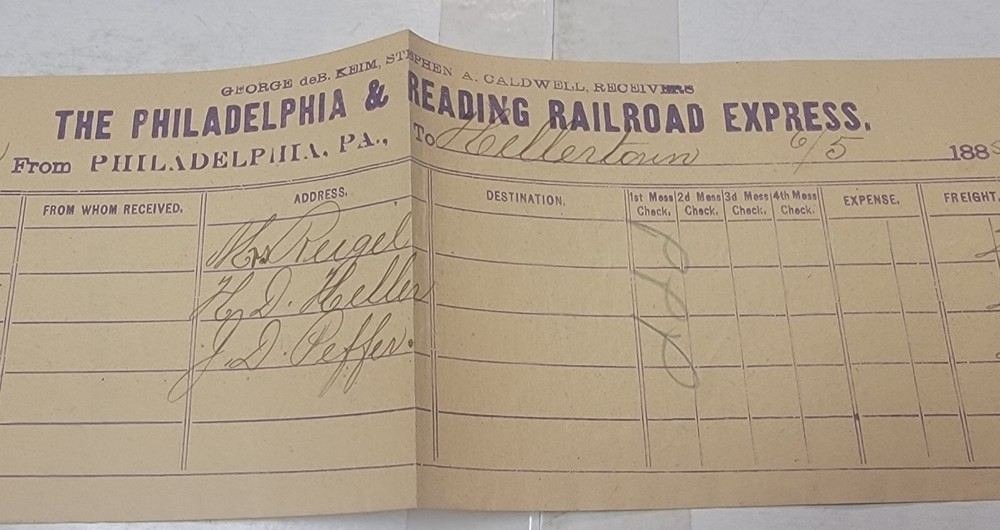 GEORGE deB. KEIM, STEPHEN A. CALDWELL, RECEIVERS
THE PHILADELPHIA & READING RAILROAD EXPRESS.
From PHILADELPHIA, PA., To Hellertown 6/5 188
FROM WHOM RECEIVED. ADDRESS. DESTINATION. 1st Mess Check. 2d Mess Check. 3d Mess Check. 4th Mess Check. EXPENSE. FREIGHT.
Mrs Reigel
H. D. Heller
J. D. Peffer.